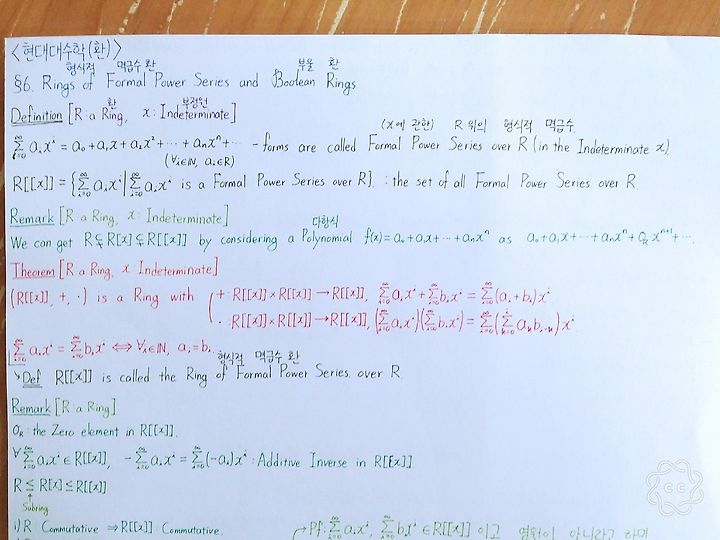 <현대대수학(환)>
형식적 멱급수 환 부울 환
§6. Rings of Formal Power Series and Boolean Rings
환 부정원
Definition [R: a Ring, x: Indeterminate]
(x에 관한) R 위의 형식적 멱급수
∑_{i=0}^{∞} a_i x^i = a_0 + a_1x + a_2x^2 + ··· + a_nx^n + ··· - forms are called Formal Power Series over R (in the Indeterminate x).
(∀i∈ℕ, a_i∈R)
R[[x]] = {∑_{i=0}^{∞} a_i x^i | ∑_{i=0}^{∞} a_i x^i is a Formal Power Series over R}. : the set of all Formal Power Series over R
Remark [R: a Ring, x: Indeterminate]
다항식
We can get R⊊R[x]⊊R[[x]] by considering a Polynomial f(x)=a_0+a_1x+···+a_nx^n as a_0+a_1x+···+a_nx^n+0_R x^{n+1}+···.
Theorem [R: a Ring, x: Indeterminate]
(R[[x]], +, ·) is a Ring with + : R[[x]]×R[[x]]→R[[x]], ∑_{i=0}^{∞} a_i x^i + ∑_{i=0}^{∞} b_i x^i = ∑_{i=0}^{∞} (a_i+b_i)x^i
· : R[[x]]×R[[x]]→R[[x]], (∑_{i=0}^{∞} a_i x^i)(∑_{i=0}^{∞} b_i x^i) = ∑_{i=0}^{∞} (∑_{k=0}^{i} a_k b_{i-k}) x^i
∑_{i=0}^{∞} a_i x^i = ∑_{i=0}^{∞} b_i x^i ⟺ ∀i∈ℕ, a_i=b_i.
형식적 멱급수 환
Def R[[x]] is called the Ring of Formal Power Series over R.
Remark [R: a Ring]
0_R: the Zero element in R[[x]].
∀∑_{i=0}^{∞} a_i x^i ∈ R[[x]], -∑_{i=0}^{∞} a_i x^i = ∑_{i=0}^{∞} (-a_i)x^i : Additive Inverse in R[[x]]
R ≤ R[x] ≤ R[[x]]
Subring
i) R Commutative ⇒ R[[x]] Commutative. → Pf: ∑_{i=0}^{∞} a_i x^i, ∑_{i=0}^{∞} b_i x^i ∈ R[[x]] 이고 영원이 아니라고 하면
CC